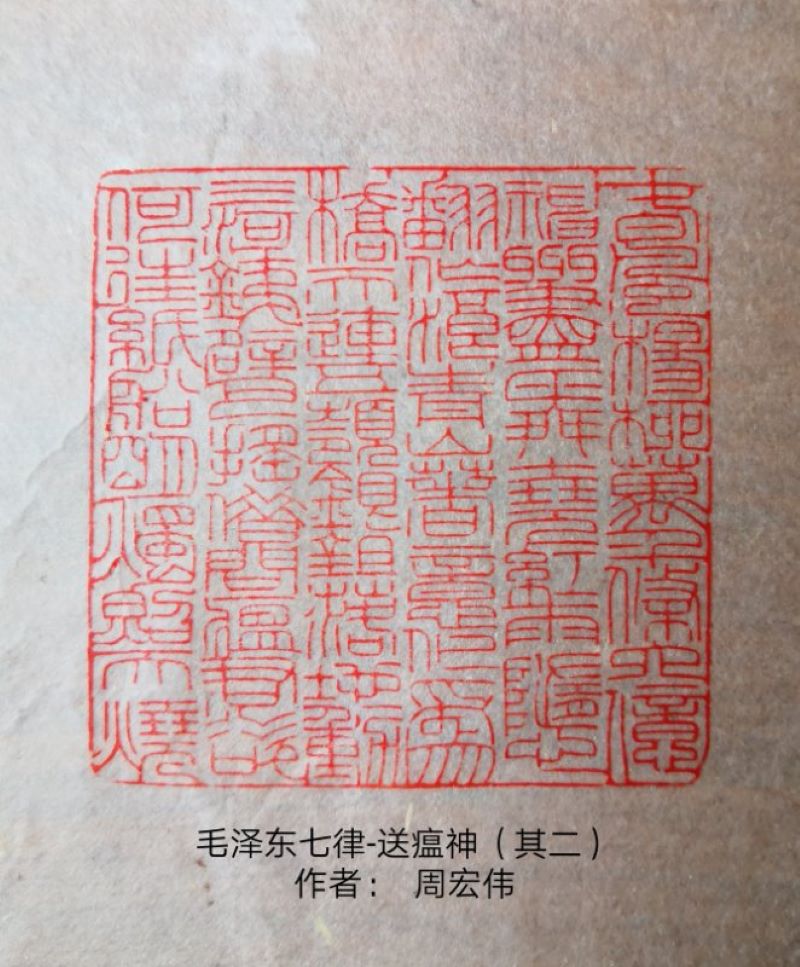 春風楊柳萬千條六億
神州盡舜堯紅雨隨心
翻作浪青山著意化為
橋天連五嶺銀鋤落地動
三河鐵臂搖借問瘟君欲
何往紙船明燭照天燒
毛泽东七律-送瘟神（其二）
作者： 周宏伟